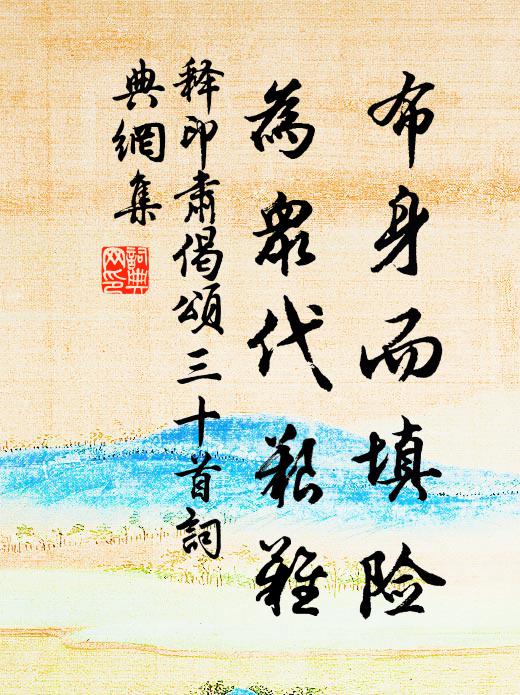 布身而填险
為眾代艱難
释印肃偈頌三十首詞
典網集
詞典
网印